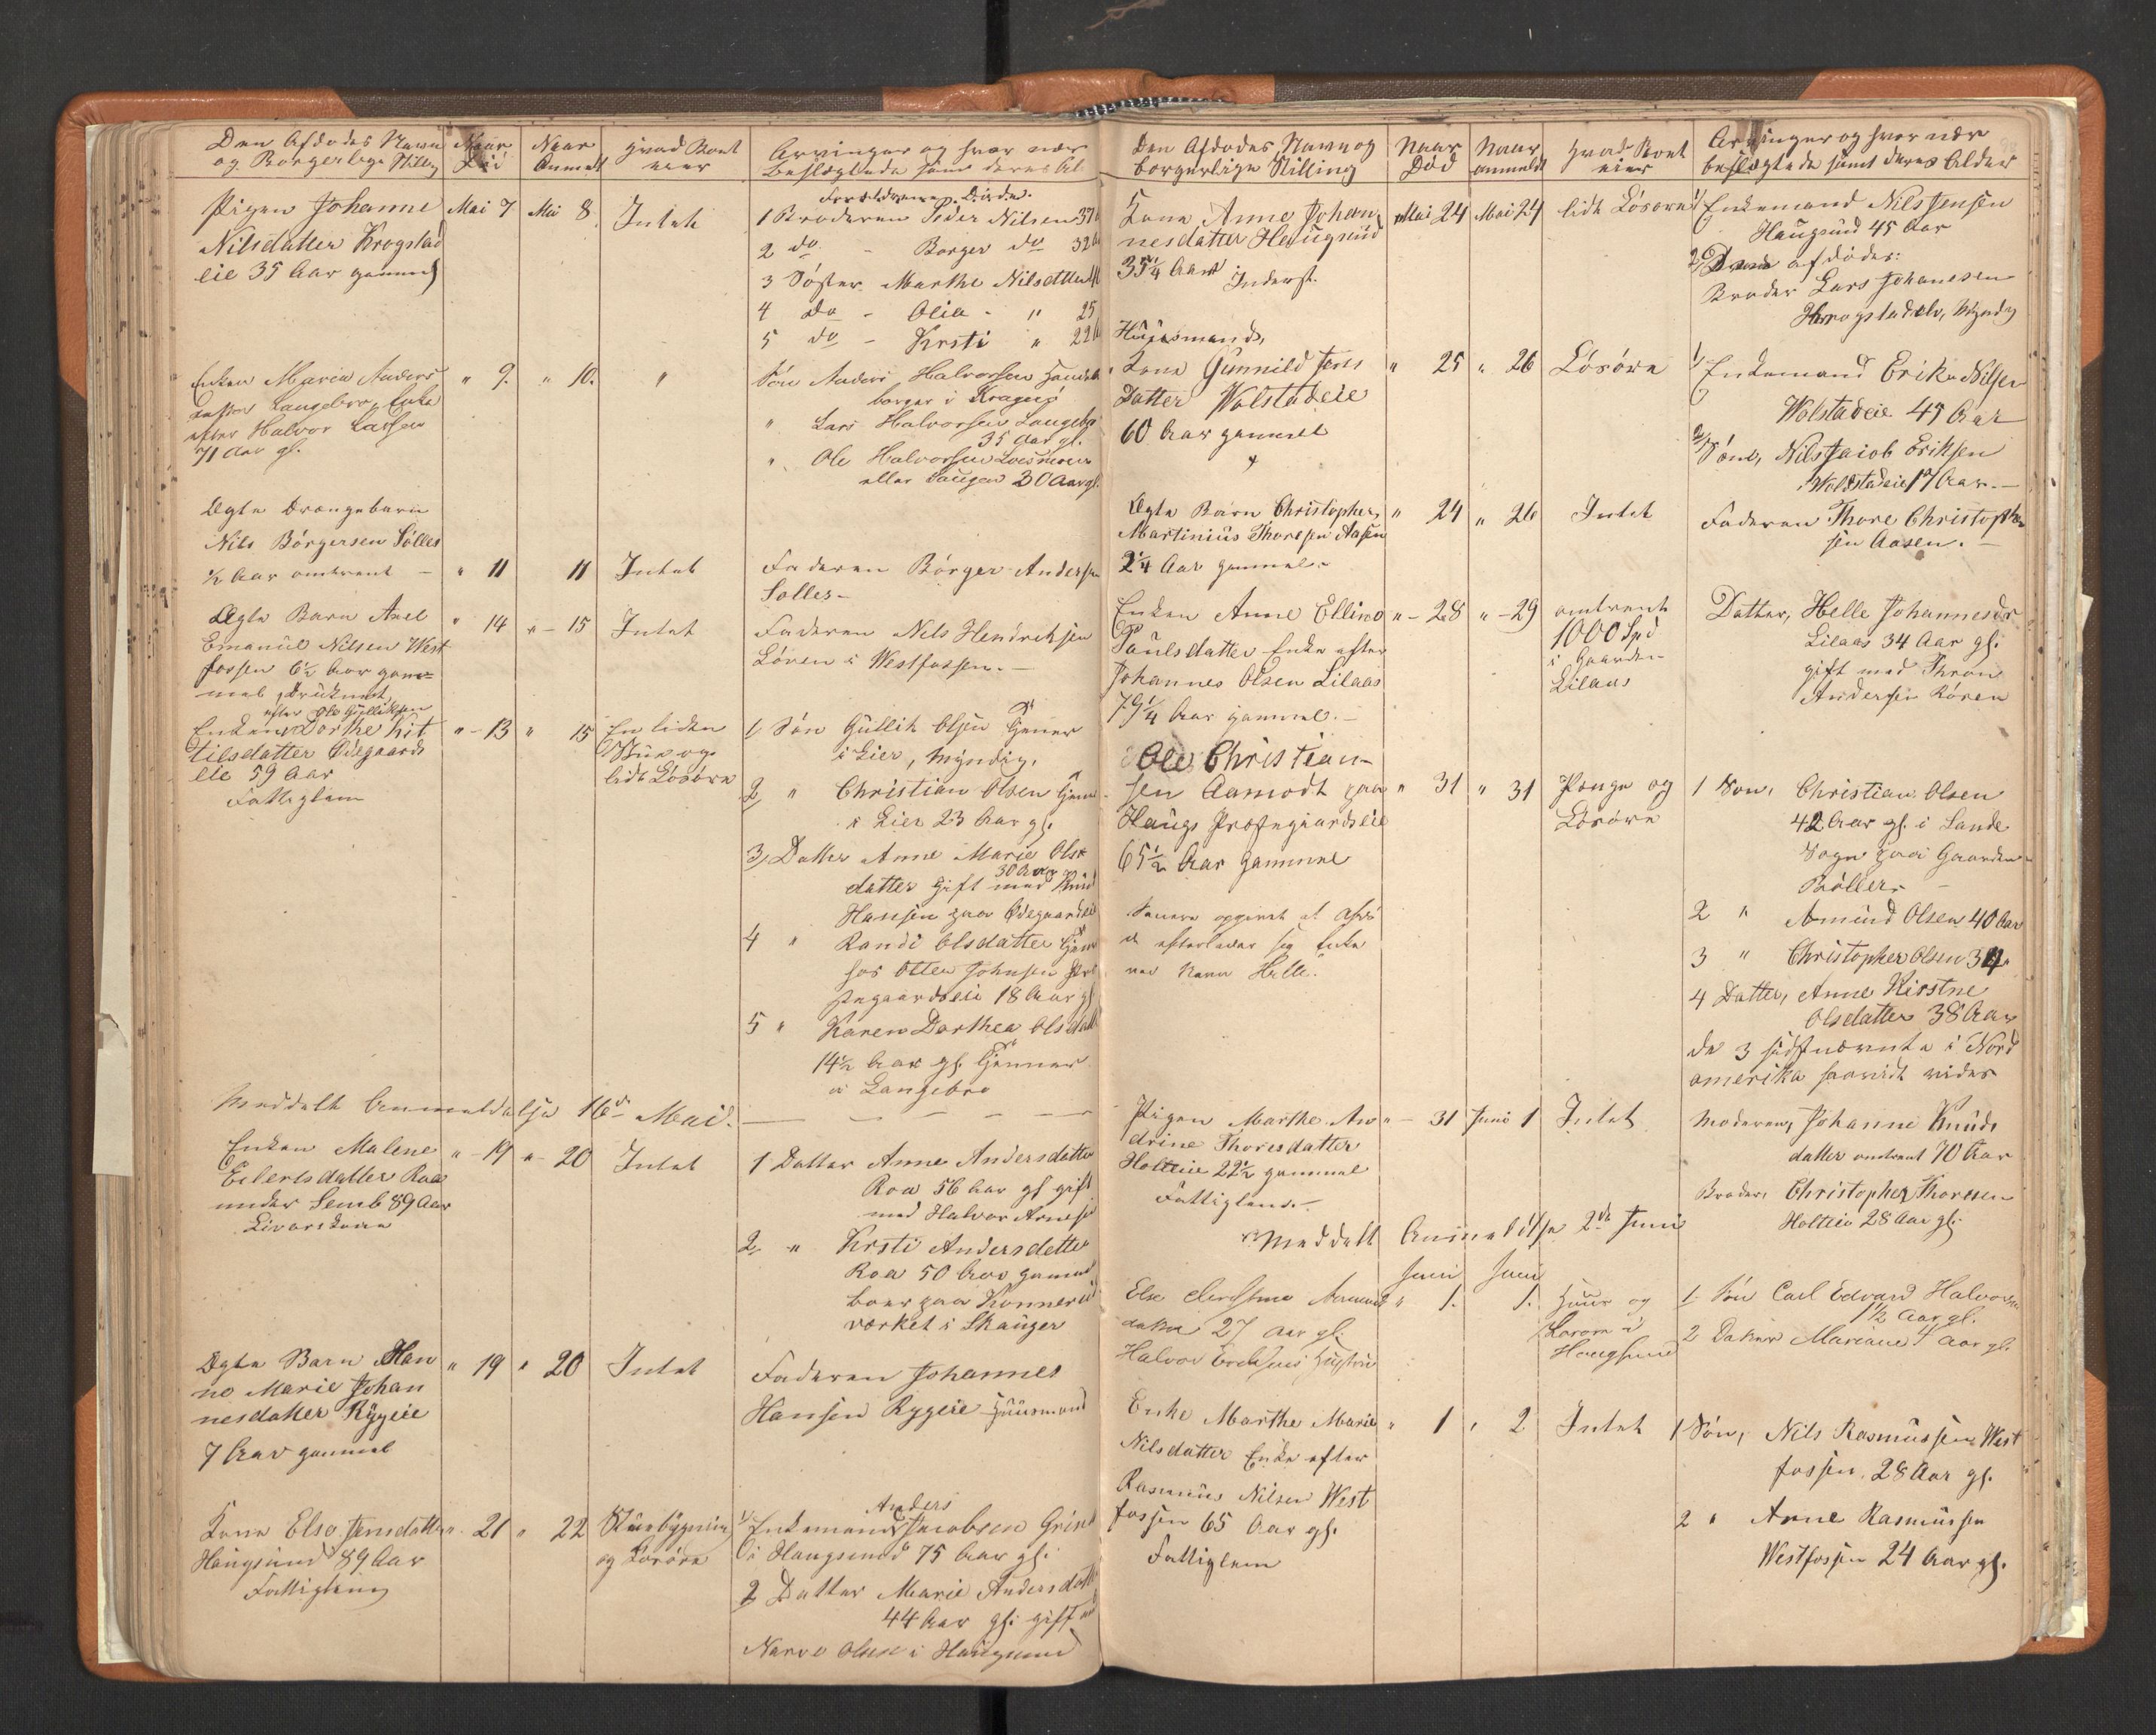 Den Afdødes Navn
og Borgerlige Stilling
Naar
Død
Naar
Anmeldt
Hvad Boet
eier
Arvinger og hvor nær
Beslægtede samt deres Al
Pigen Johanne
Nilsdatter Krogstad
eie 35 Aar gammel
Mai 7
Mai 8
Intet
Forældrene Døde.
1 Broderen Peder Nilsen 37
2 do - Børger do 32
3 Søster Marthe Nilsdatter
4 do - Olia - " 25
5 do - Kirsti " 22
Enken Maria Anders
datter Langebro, Enke
efter Halvor Larsen
71 Aar gl.
" 9.
" 10.
"
Søn Anders Halvorsen Handels
borger i Kragerø
" Lars Halvorsen Langebro
35 Aar gl.
" Ole Halvorsen
eller Haugen 30 Aar gl.
Ægte Drængebarn
Nils Børgersen Solles
½ Aar omtrent -
" 11
11
Intet
Faderen Børger Andersen
Solles -
Ægte Barn Axel
Emanuel Nilsen West
fossen 6½ Aar gam
mel, Druknet
" 14
" - 15
Intet
Faderen Nels Hendriksen
Løren i Westfossen. -
efter Ole Gulliksen
Enken Dorthe Kit
tilsdatter Ødegaards
eie 59 Aar
Fattiglem
" - 13
" 15
En liden
Stue og
lidt Løsøre
1 Søn Gullik Olsen tjener
i Lier, Myndig,
2 " Christian Olsen tjener
i Lier 23 Aar gl.
3, Datter Anne Marie Ols
30 Aar
datter Gift med Knud
Hansen paa Ødegaardseie
4 " Randi Olsdatter tjener
hos Otter Johnsen Præ
stegaardseie 18 Aar gl
5 " Karen Dorthea Olsdatt
14½ Aar gl. tjener
i Langebro
Meddelt Anmeldelse 16de Mai. - - - - -
Enken Malene
Eilertsdatter Roa
under Semb 89 Aar
" - 19
" - 20
Intet
1 Datter Anne Andersdatter
Roa 56 Aar gl gift
med Halvor Arnesen
2 " Kirsti Andersdatter
Roa 50 Aar gammel
boer paa Konnerud
værket i Skauger
Ægte Barn Han
ne Marie Johan
nesdatter Rygeie
7 Aar gammel
" 19
" 20
Intet
Faderen Johannes
Hansen Rygeie Huusmand
Kone Else Jensdatter
Haugsund 89 Aar
Fattiglem
" 21
" 22
Stuebygning
og Løsøre
Anders
1/ Enkemand Jacobsen Grind
i Haugsund 75 Aar gl.
2 Datter Marie Andersdatt
44 Aar gl. gift med
Narve Olsen i Haugsund
Den Afdødes Navn og
borgerlige Stilling
Naar
Død
Naar
anmeldt
Hvad Boet
eier
Arvinger og hvor nær
beslægtede samt deres Alder
Kone Anne Johan
nesdatter Haugsund
35¼ Aar Inderst.
Mai 24
Mai 24
lidt Løsøre
1/ Enkemand Nils Jensen
Haugsund 45 Aar
2/ Den afdødes:
Broder Lars Johanesen
Krogstadelv, Myndig
Huusmands
Kone Gunnild Jens
Datter Wolstadeie
60 Aar gammel
" 25
" 26
Løsøre
1/ Enkemand Erik Nilsen
Wolstadeie 45 Aar
2/ Søn, Nils Jacob Eriksen
Wolstadeie 17 Aar. -
Ægte Barn Christopher
Martinius Thoresen Aasen
2¼ Aar gammel -
" 24
" 26
Intet
Faderen Thore Christopher
sen Aasen. -
Enken Anne Elline
Paulsdatter Enke efter
Johannes Olsen Lilaas
79¼ Aar gammel. -
" - 28
" - 29
omtrent
1000 Spd
i Gaarden
Lilaas
Datter, Helle Johannesdr
Lilaas 34 Aar gl.
gift med Thron
Andersen Røren
Ole Christian-
sen Aamodt paa
Haugs Præstegaardseie
65½ Aar gammel
" 31
" 31
Penge og
Løsøre
1 Søn, Christian Olsen
42 Aar gl. i Sande
Sogn paa Gaarden
Bøller -
2 " Amund Olsen 40 Aar
3 " Christopher Olsen 34
4 Datter, Anne Kirstne
Olsdatter 38 Aar
de 3 sidstnævnte i Nord
amerika saavidt vides
Senere opgivet at Afdø
de efterlader sig Enke
ved Navn Helle.
Pigen Marthe An
drine Thoresdatter
Holteie 22½ gammel
Fattiglem. -
" - 31
Juni 1
Intet
Moderen, Johanne Knuds
datter omtrent 70 Aar
Broder, Christopher Thoresen
Holteie 28 Aar gl.
Meddelt Anmeldelse 2de Juni
Juni
Juni
Else Amund
datter 27 Aar gl.
Halvor Eriksens Hustru
" 1.
1.
Huus og
Løsøre i
Haugsund
1 Søn Carl Edvard Halvorsen
1½ Aar gl.
2 Datter Mariane 4 Aar gl.
Enke Marthe Marie
Nilsdatter Enke efter
Rasmus Nilsen West
fossen 65 Aar gl.
Fattiglem
" 1
" 2
Intet
1 Søn, Nils Rasmussen West
fossen 28 Aar gl.
2 " Arne Rasmussen
Westfossen 24 Aar gl.